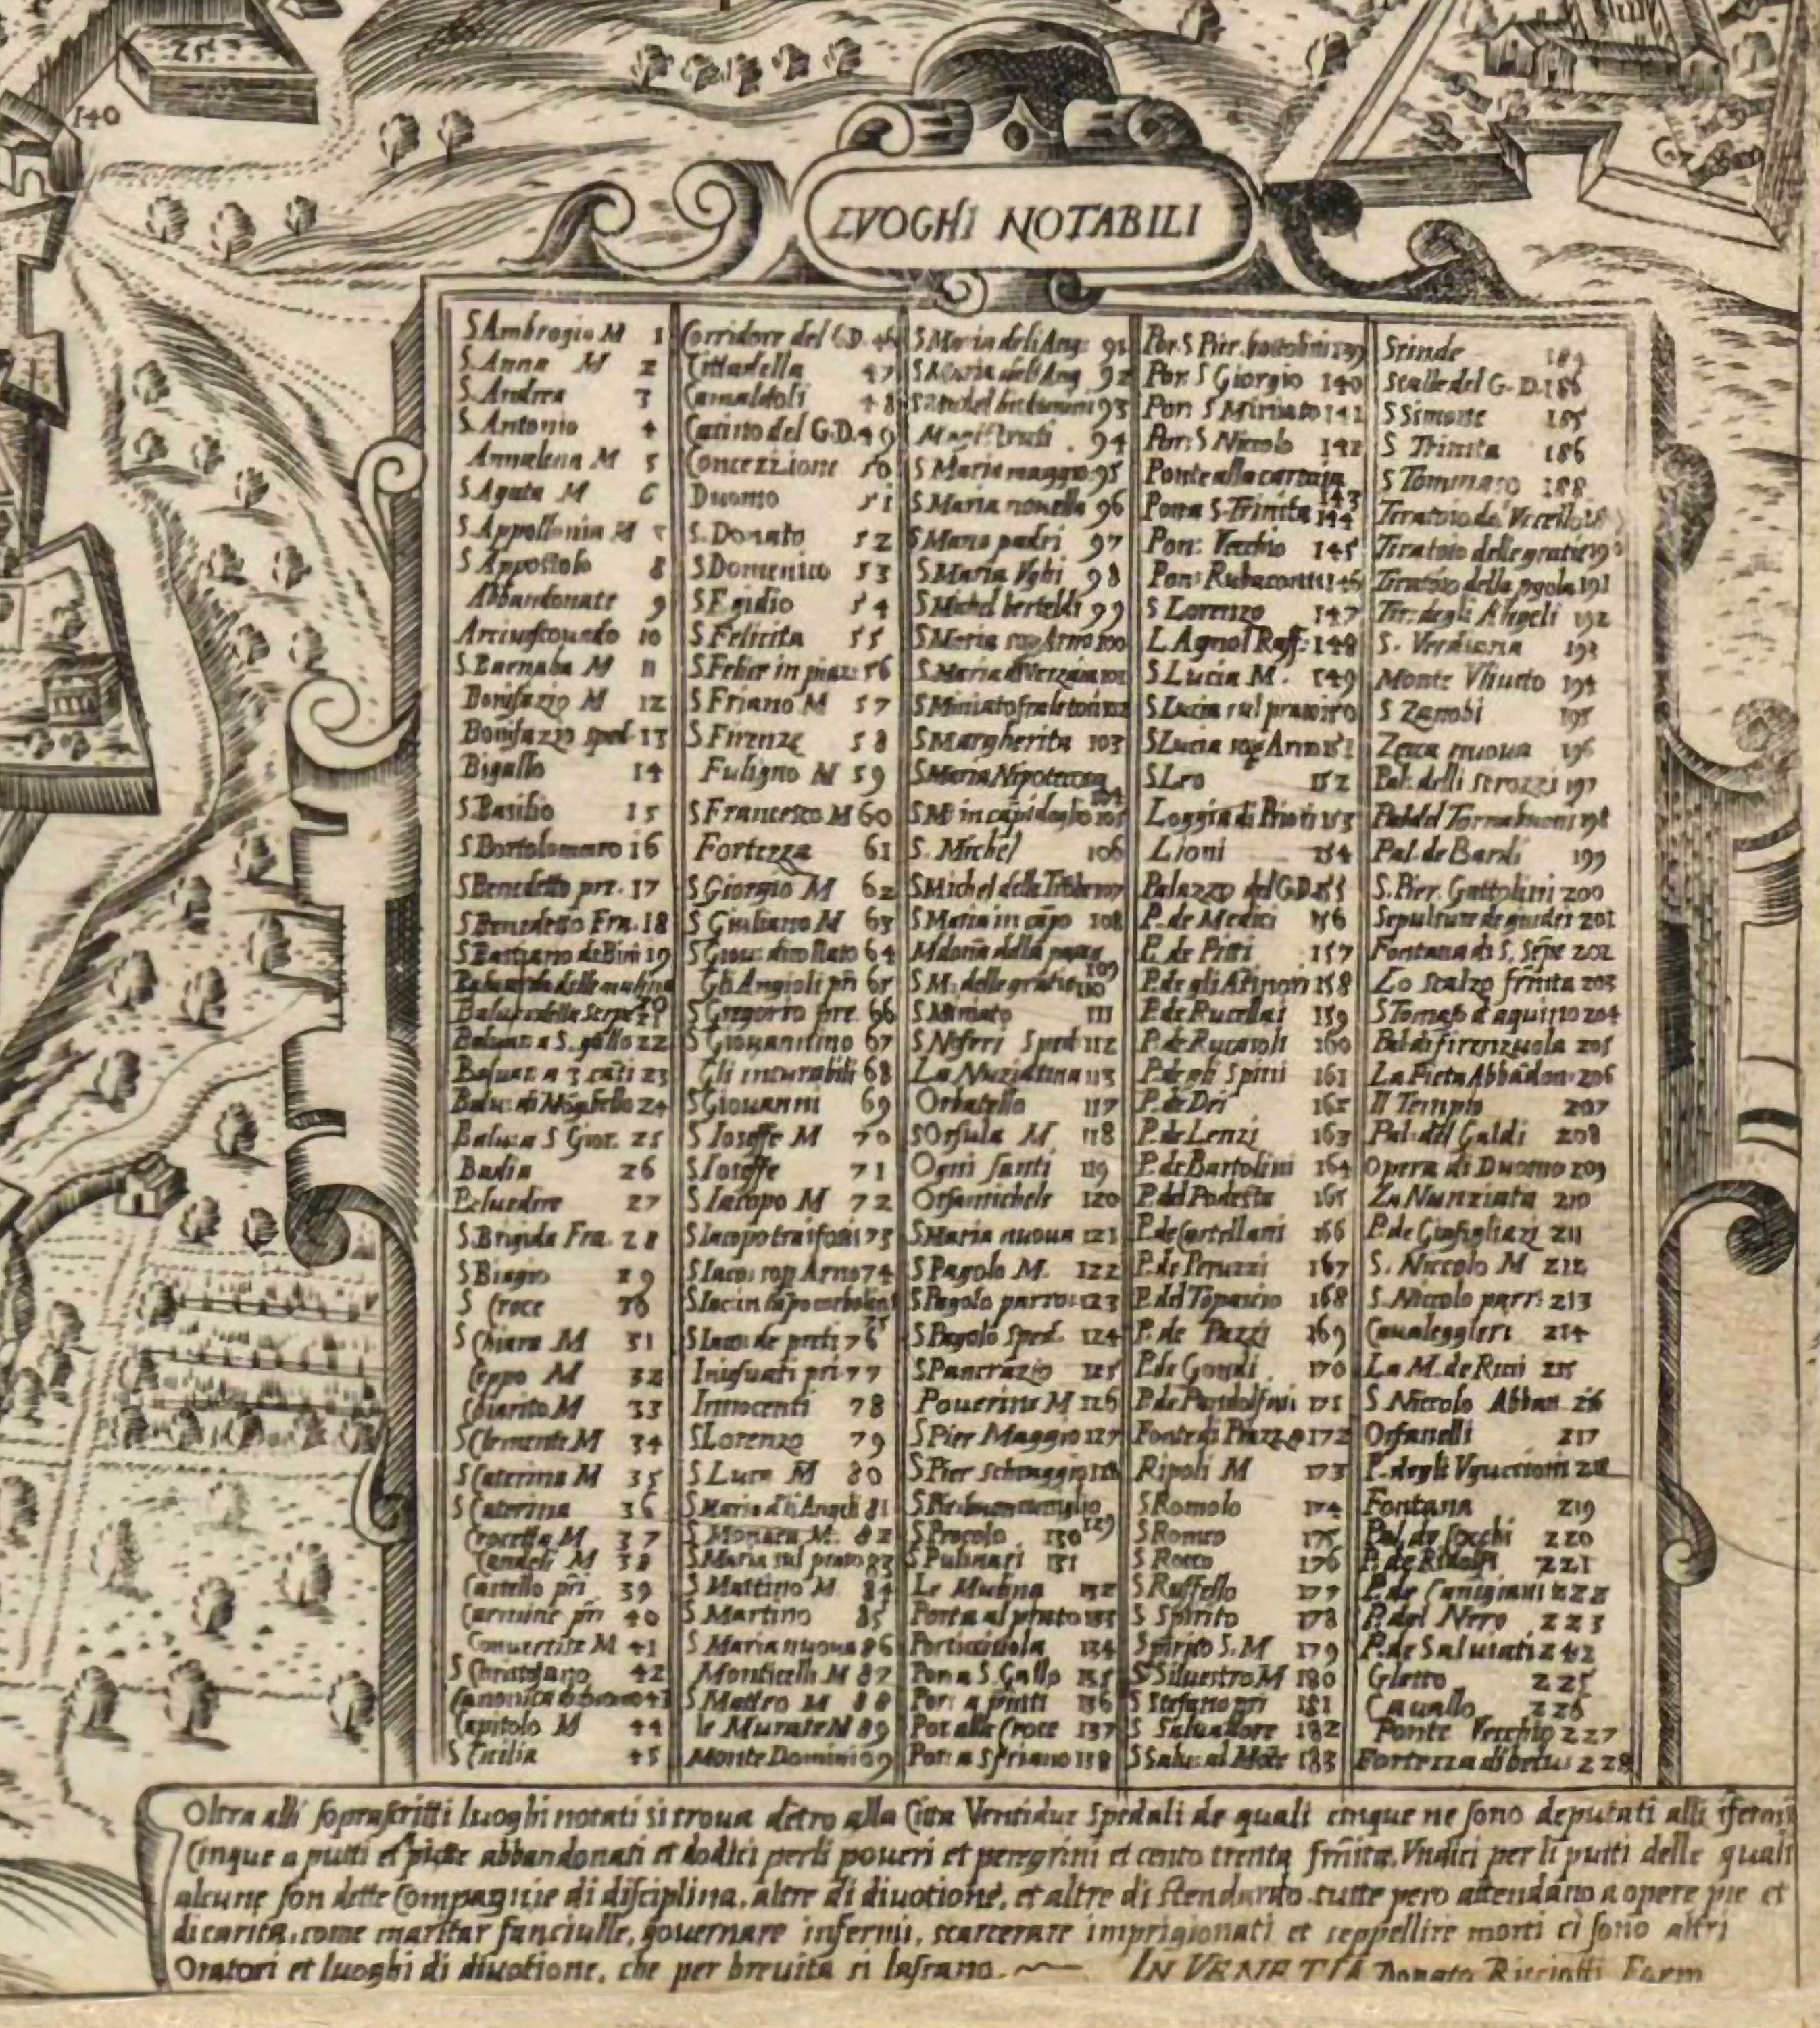 25
140
67
LVOGHI NOTABILI
S Ambrogio M 1
S. Anna M 2
S. Andrea 3
S. Antonio 4
Annalena M 5
S. Agata M 6
S. Appollonia M
S. Appostolo 8
Abbandonate 9
10
S. Barnaba M 11
Bonifazio M 12
Bonifazio sped. 13
Bigallo 14
S. Basilio 15
S Bortolommeo 16
S Benedetto pre. 17
S Benedetto Fra. 18
S Bastiano de Bini 19
20
21
Baluar. a S. gallo 22
23
24
Baluar. a S Gior. 25
Badia 26
Beluedere 27
S. Brigida Fra. 28
S Biagio 29
S Croce 30
S Chiara M 31
Ceppo M 32
Chiarito M 33
S Clemente M 34
S Caterina M 35
S Caterina 36
Crocetta M 37
Candeli M 38
Castello pri 39
Carmine pri 40
Conuertite M 41
S Christofano 42
43
Capitolo M 44
S Cicilia 45
Corridore del G.D. 46
Cittadella 47
Camaldoli 48
Casino del G.D. 49
Concezzione 50
Duomo 51
S. Donato 52
S Domenico 53
S Egidio 54
S Felicita 55
S Felice in piaz. 56
S Friano M 57
S Firenze 58
Fuligno M 59
S Francesco M 60
Fortezza 61
S Giorgio M 62
S Giuliano M 63
S Giou: dicollato 64
Gli Angioli pri 65
S Gregorio pre. 66
S Giouannino 67
Gli incurabili 68
S Giouanni 69
S Ioseffe M 70
S Ioseffe 71
S Iacopo M 72
S Iacopo tra ifossi 73
S Iaco: sop Arno 74
S Iac in capo corbolini 75
S Iaco: de preti 76
Iniesuati pri 77
Innocenti 78
S Lorenzo 79
S Luca M 80
S Maria dli Angeli 81
S Monaca M. 82
S Maria sul prato 83
S Martino M 84
S Martino 85
S Maria nuoua 86
Monticelli M 87
S Matteo M 88
le Murate M 89
Monte Domini 09
S Maria deli Ang: 91
S Maria deli Ang 92
93
Magistrati . 94
S Maria maggio 95
S Maria nouella 96
S Marco padri 97
S Maria Vghi 98
S Michel berteldi 99
S Maria sop Arno 100
S Maria d Verzaia 101
S Miniato fra le torri 102
S Margherita 103
S Maria Nipotecosa 104
S M in capidoglio 105
S. Michel 106
S Michel delle Trombe 107
S Maria in cãpo 108
Mdoña della pace 109
S M. delle gratie 110
S Miniato 111
S Noferi Sped 112
La Nuziatina 113
Orbatello 117
S Orsula M 118
Ogni santi 119
Orsanmichele 120
S Maria nuoua 121
S Pagolo M. 122
S Pagolo parro: 123
S Pagolo sped. 124
S Pancrazio 125
Pouerine M 126
S Pier Maggio 127
S Pier scheraggio 128
S Pie buonconsiglio 129
S Procolo 130
S Pulinari 131
Le Mulina 132
Porta al prato 133
Porticciuola 134
Porta S. Gallo 135
Por: a pinti 136
Por. alla Croce 137
Porta S friano 138
139
Por: S Giorgio 140
Por: S Miniato 141
Por: S Niccolo 142
Ponte alla carraia 143
Ponta S. Trinita 144
Pon: Vecchio 145
Pon: Rubaconte 146
S Lorenzo 147
L Agnol Raff: 148
S Lucia M. 149
S Lucia sul prato 150
S Lucia sop Arno 151
S Leo 152
Loggia di Priori 153
Lioni 154
Palazzo del G.D. 155
P. de Medici 156
P. de Pitti 157
158
P. de Rucellai 159
P. de Rucasoli 160
P. degli Spini 161
P. de Dri 162
P. de Lenzi 163
P. de Bartolini 164
P. del Podesta 165
P. de Castellani 166
P. de Peruzzi 167
168
P. de Pazzi 169
P. de Gondi 170
P. de Pandolfini 171
Fonte di Piazza 172
Ripoli M 173
S Romolo 174
S Romeo 175
S Rocco 176
S Ruffello 177
S Spirito 178
Spirito S. M 179
S Siluestro M 180
S Stefano pri 181
S Saluadore 182
S Salu: al Mõte 183
Stinde 184
Stalle del G. D. 186
S Simone 185
S Trinita 186
S Tommaso 188
Tiratoio de Vecello
Tiratoio delle gratie 190
Tiratoio della pgola 191
Tir: degli Angeli 192
S. Verdiana 193
Monte Vliueto 194
S Zanobi 195
Zecca nuoua 196
Pal: delli strozzi 197
Pal del Tornabuoni 198
Pal. de Bardi 199
S. Pier. Gattolini 200
Sepulture de giudei 201
Fontana di S. Sepe 202
Lo scalzo frñita 203
S Tomaso d aquino 204
Pal di firenzuola 205
La Pieta Abbãdon. 206
Il Tempio 207
Pal: del Galdi 208
Opera di Duomo 209
La Nunziata 210
P. de Giãfigliazi 211
S. Niccolo M 212
S. Niccolo parr: 213
Caualeggieri 214
La M. de Ricci 215
S Niccolo Abban 216
Orfanelli 217
P. degli Vguccioni 218
Fontana 219
220
P. de Ridolfi 221
P. de Canigiani 222
P. del Nero 223
P. de Saluiati 242
Gletto 225
Cauallo 226
Ponte Vecchio 227
Fortezza di belu: 228
Oltra alli soprascritti luoghi notati si troua dẽtro alla Citta Ventidue Spedali de quali cinque ne sono deputati alli ifermi
Cinque a putti et putte abbandonati et dodici perli poueri et peregrini et cento trenta frñite. Vndici per li putti delle quali
alcune son dette Compagnie di disciplina, altre di diuotione, et altre di stendardo. tutte pero attendano a opere pie et
di carita, come maritar fanciulle, gouernare infermi, scarcerare imprigionati et seppellire morti ci sono altri
Oratori et luoghi di diuotione, che per breuita si lasciano. IN VENETIA Donato Rasciotti Form